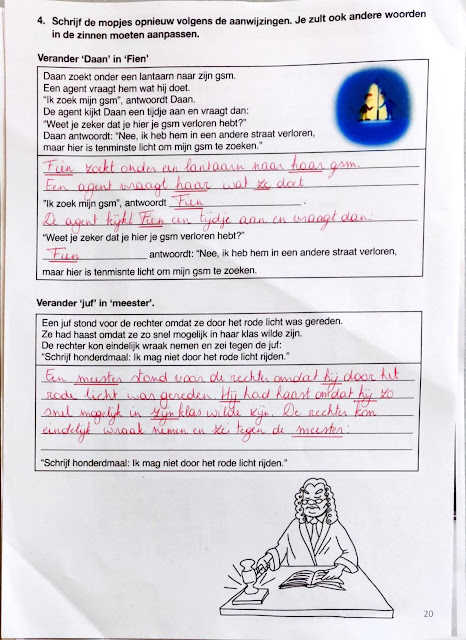 4. Schrijf de mopjes opnieuw volgens de aanwijzingen. Je zult ook andere woorden
in de zinnen moeten aanpassen.
Verander 'Daan' in 'Fien'
Daan zoekt onder een lantaarn naar zijn gsm.
Een agent vraagt hem wat hij doet.
"Ik zoek mijn gsm", antwoordt Daan.
De agent kijkt Daan een tijdje aan en vraagt dan:
"Weet je zeker dat je hier je gsm verloren hebt?"
Daan antwoordt: "Nee, ik heb hem in een andere straat verloren,
maar hier is tenminste licht om mijn gsm te zoeken."
Fien zoekt onder een lantaarn naar haar gsm.
Een agent vraagt haar wat ze doet
"Ik zoek mijn gsm", antwoordt Fien .
De agent kijkt Fien een tijdje aan en vraagt dan:
"Weet je zeker dat je hier je gsm verloren hebt?"
Fien antwoordt: "Nee, ik heb hem in een andere straat verloren,
maar hier is tenmisnte licht om mijn gsm te zoeken.
Verander 'juf' in 'meester'.
Een juf stond voor de rechter omdat ze door het rode licht was gereden.
Ze had haast omdat ze zo snel mogelijk in haar klas wilde zijn.
De rechter kon eindelijk wraak nemen en zei tegen de juf:
"Schrijf honderdmaal: Ik mag niet door het rode licht rijden."
Een meester stond voor de rechter omdat hij door het
rode licht was gereden. Hij had haast omdat hij zo
snel mogelijk in zijn klas wilde zijn. De rechter kon
eindelijk wraak nemen en zei tegen de meester:
"Schrijf honderdmaal: Ik mag niet door het rode licht rijden."
20